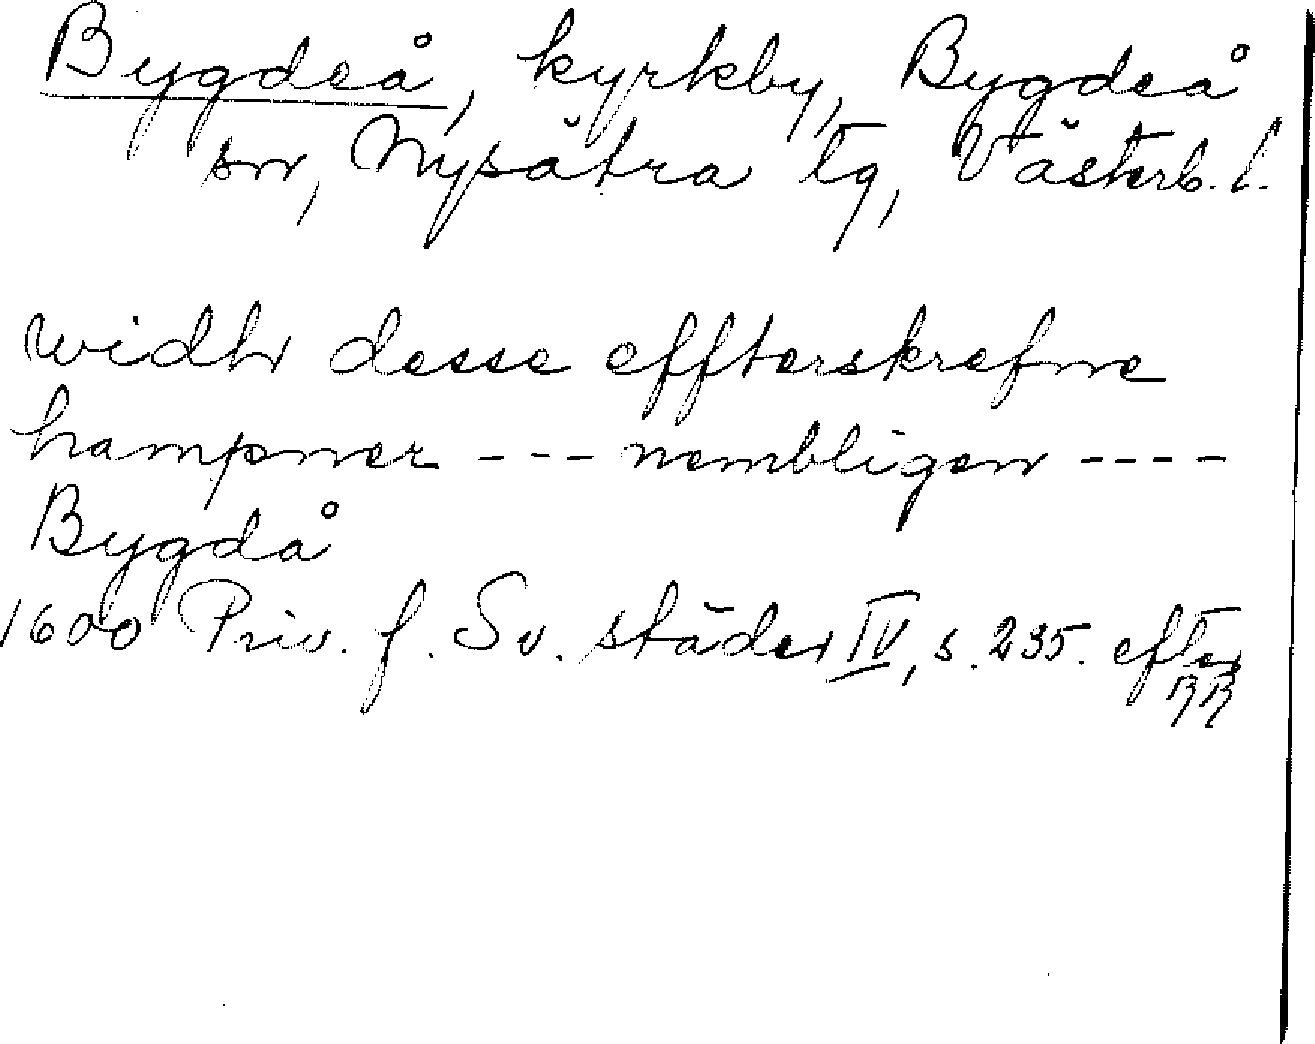 Bygdeå, kyrkby, Bygdeå
sn, Nysätra tg, Västerb. l.
widhr desse effterskrefne
hampner --- nembligen ----
Bygdå
1600 Priv. f. Sv. städer IV, s. 235. efter
RR